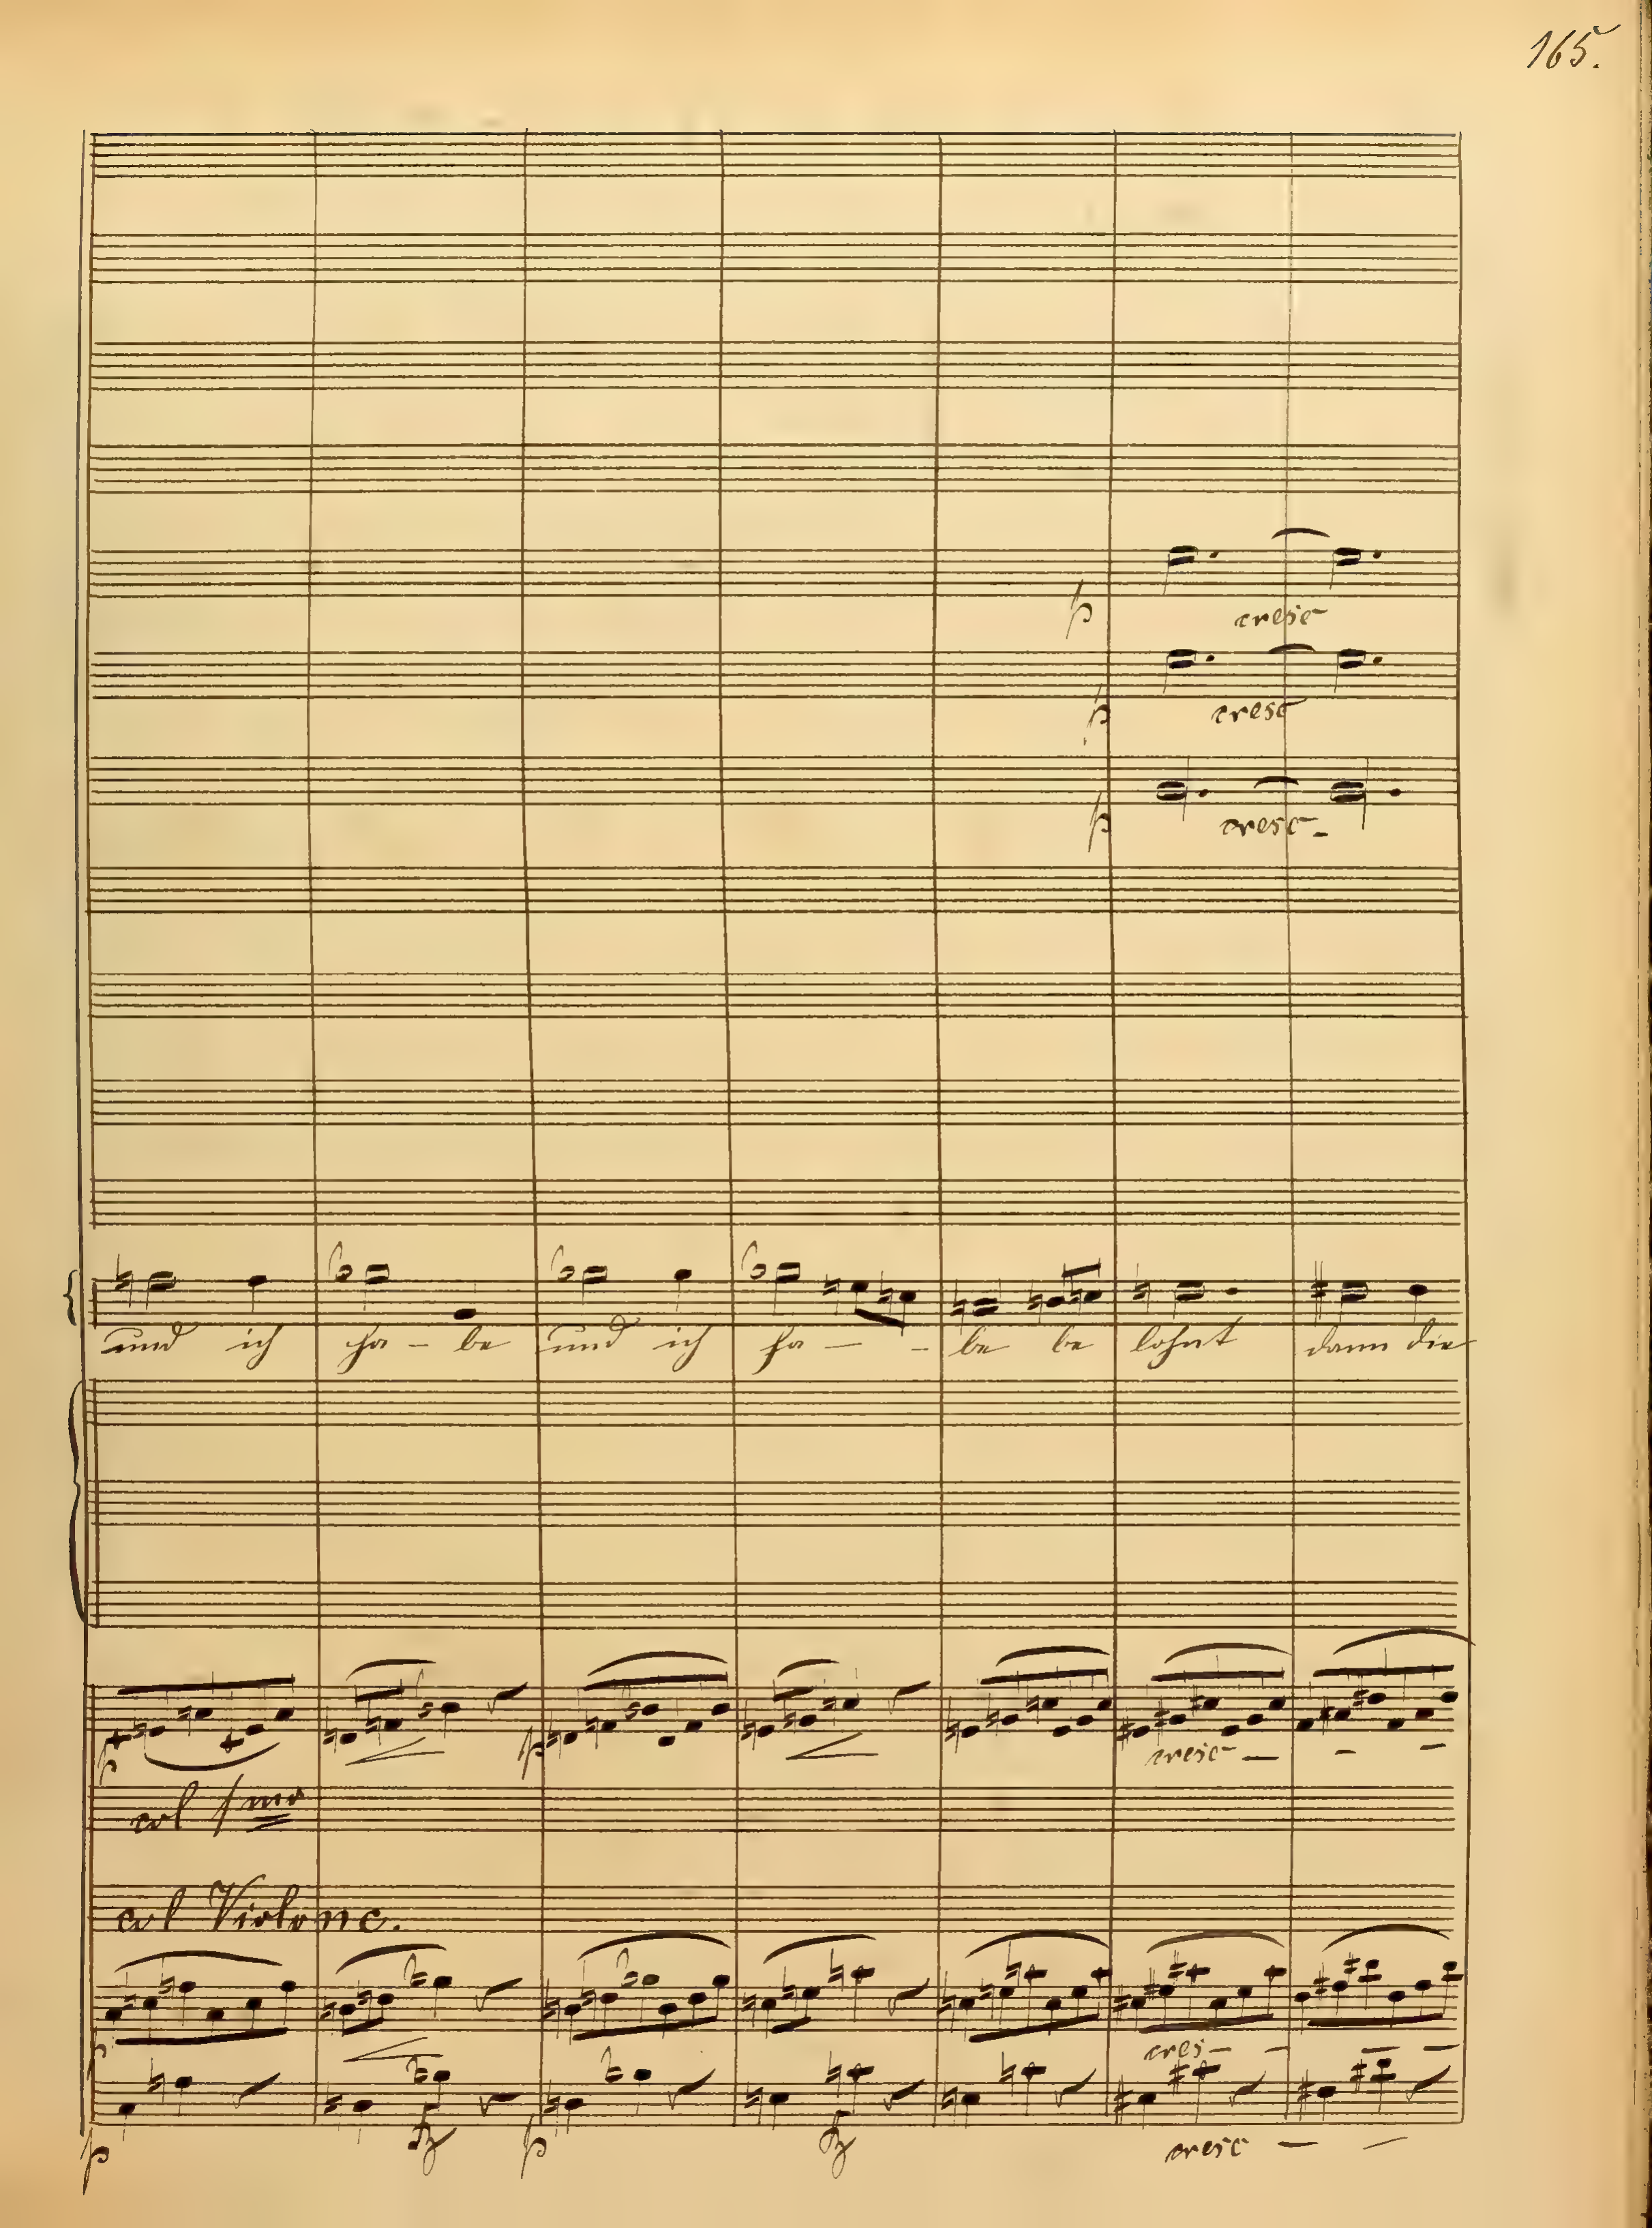 165.
p cresc
p cresc
p cresc -
und ich ha - be und ich ha - - be be lohnt dann die
p p cresc - - -
col 1mo
col Violonc.
p cres - - - -
p fz p fz cresc - -